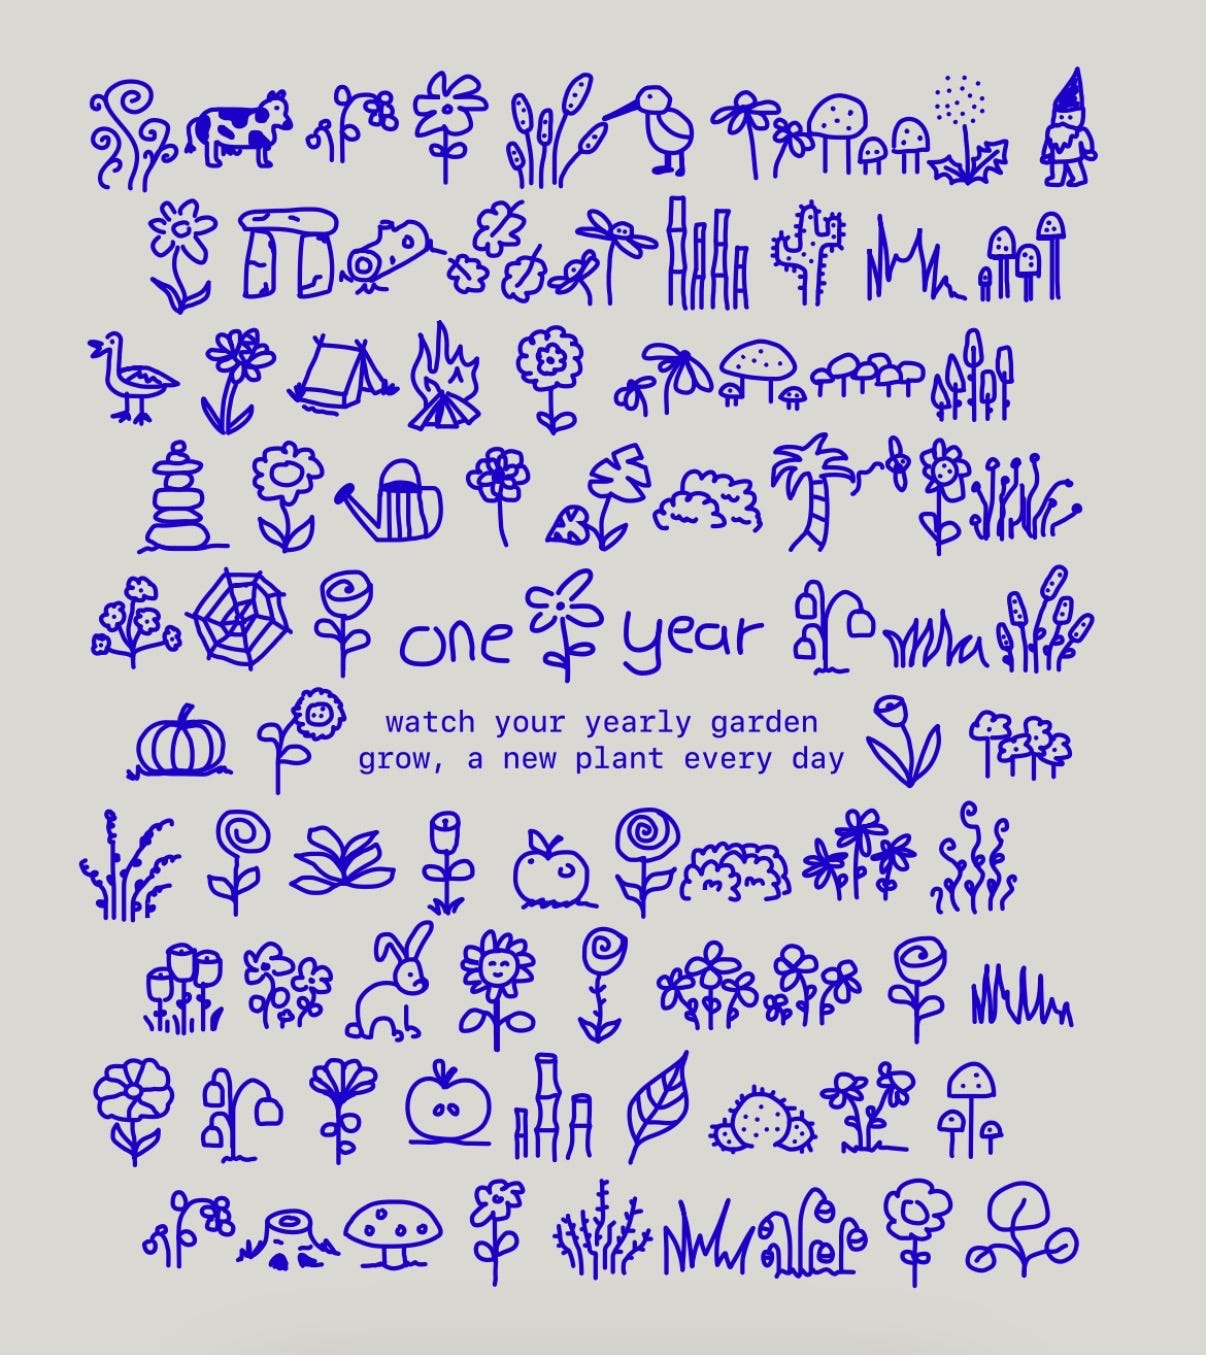 one year
watch your yearly garden
grow, a new plant every day